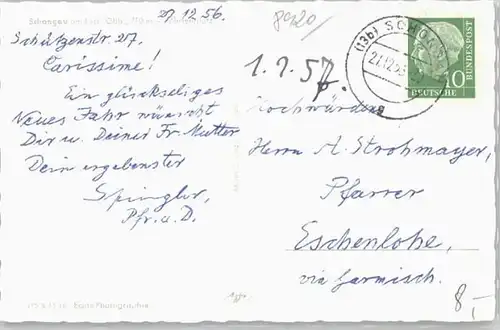 27.12.56.
Schützenstr. 27.
Carissime!
Ein glückseliges
Neues Jahr wünscht
Dir u. Deiner Fr. Mutter
Dein ergebenster
Spingler,
Pfr. a. D.
8920/
1.1.57.
(13b) SCHONG
DEUTSCHE
BUNDESPOST
10
Hochwürden
Herrn A. Strohmayer,
Pfarrer
Eschenlohe,
via Garmisch.
8,-